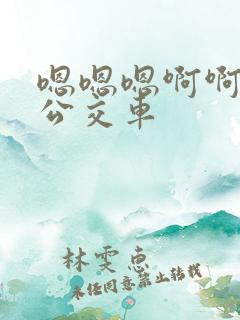 嗯嗯嗯啊啊
公交车
林雯惠
未经同意禁止转载